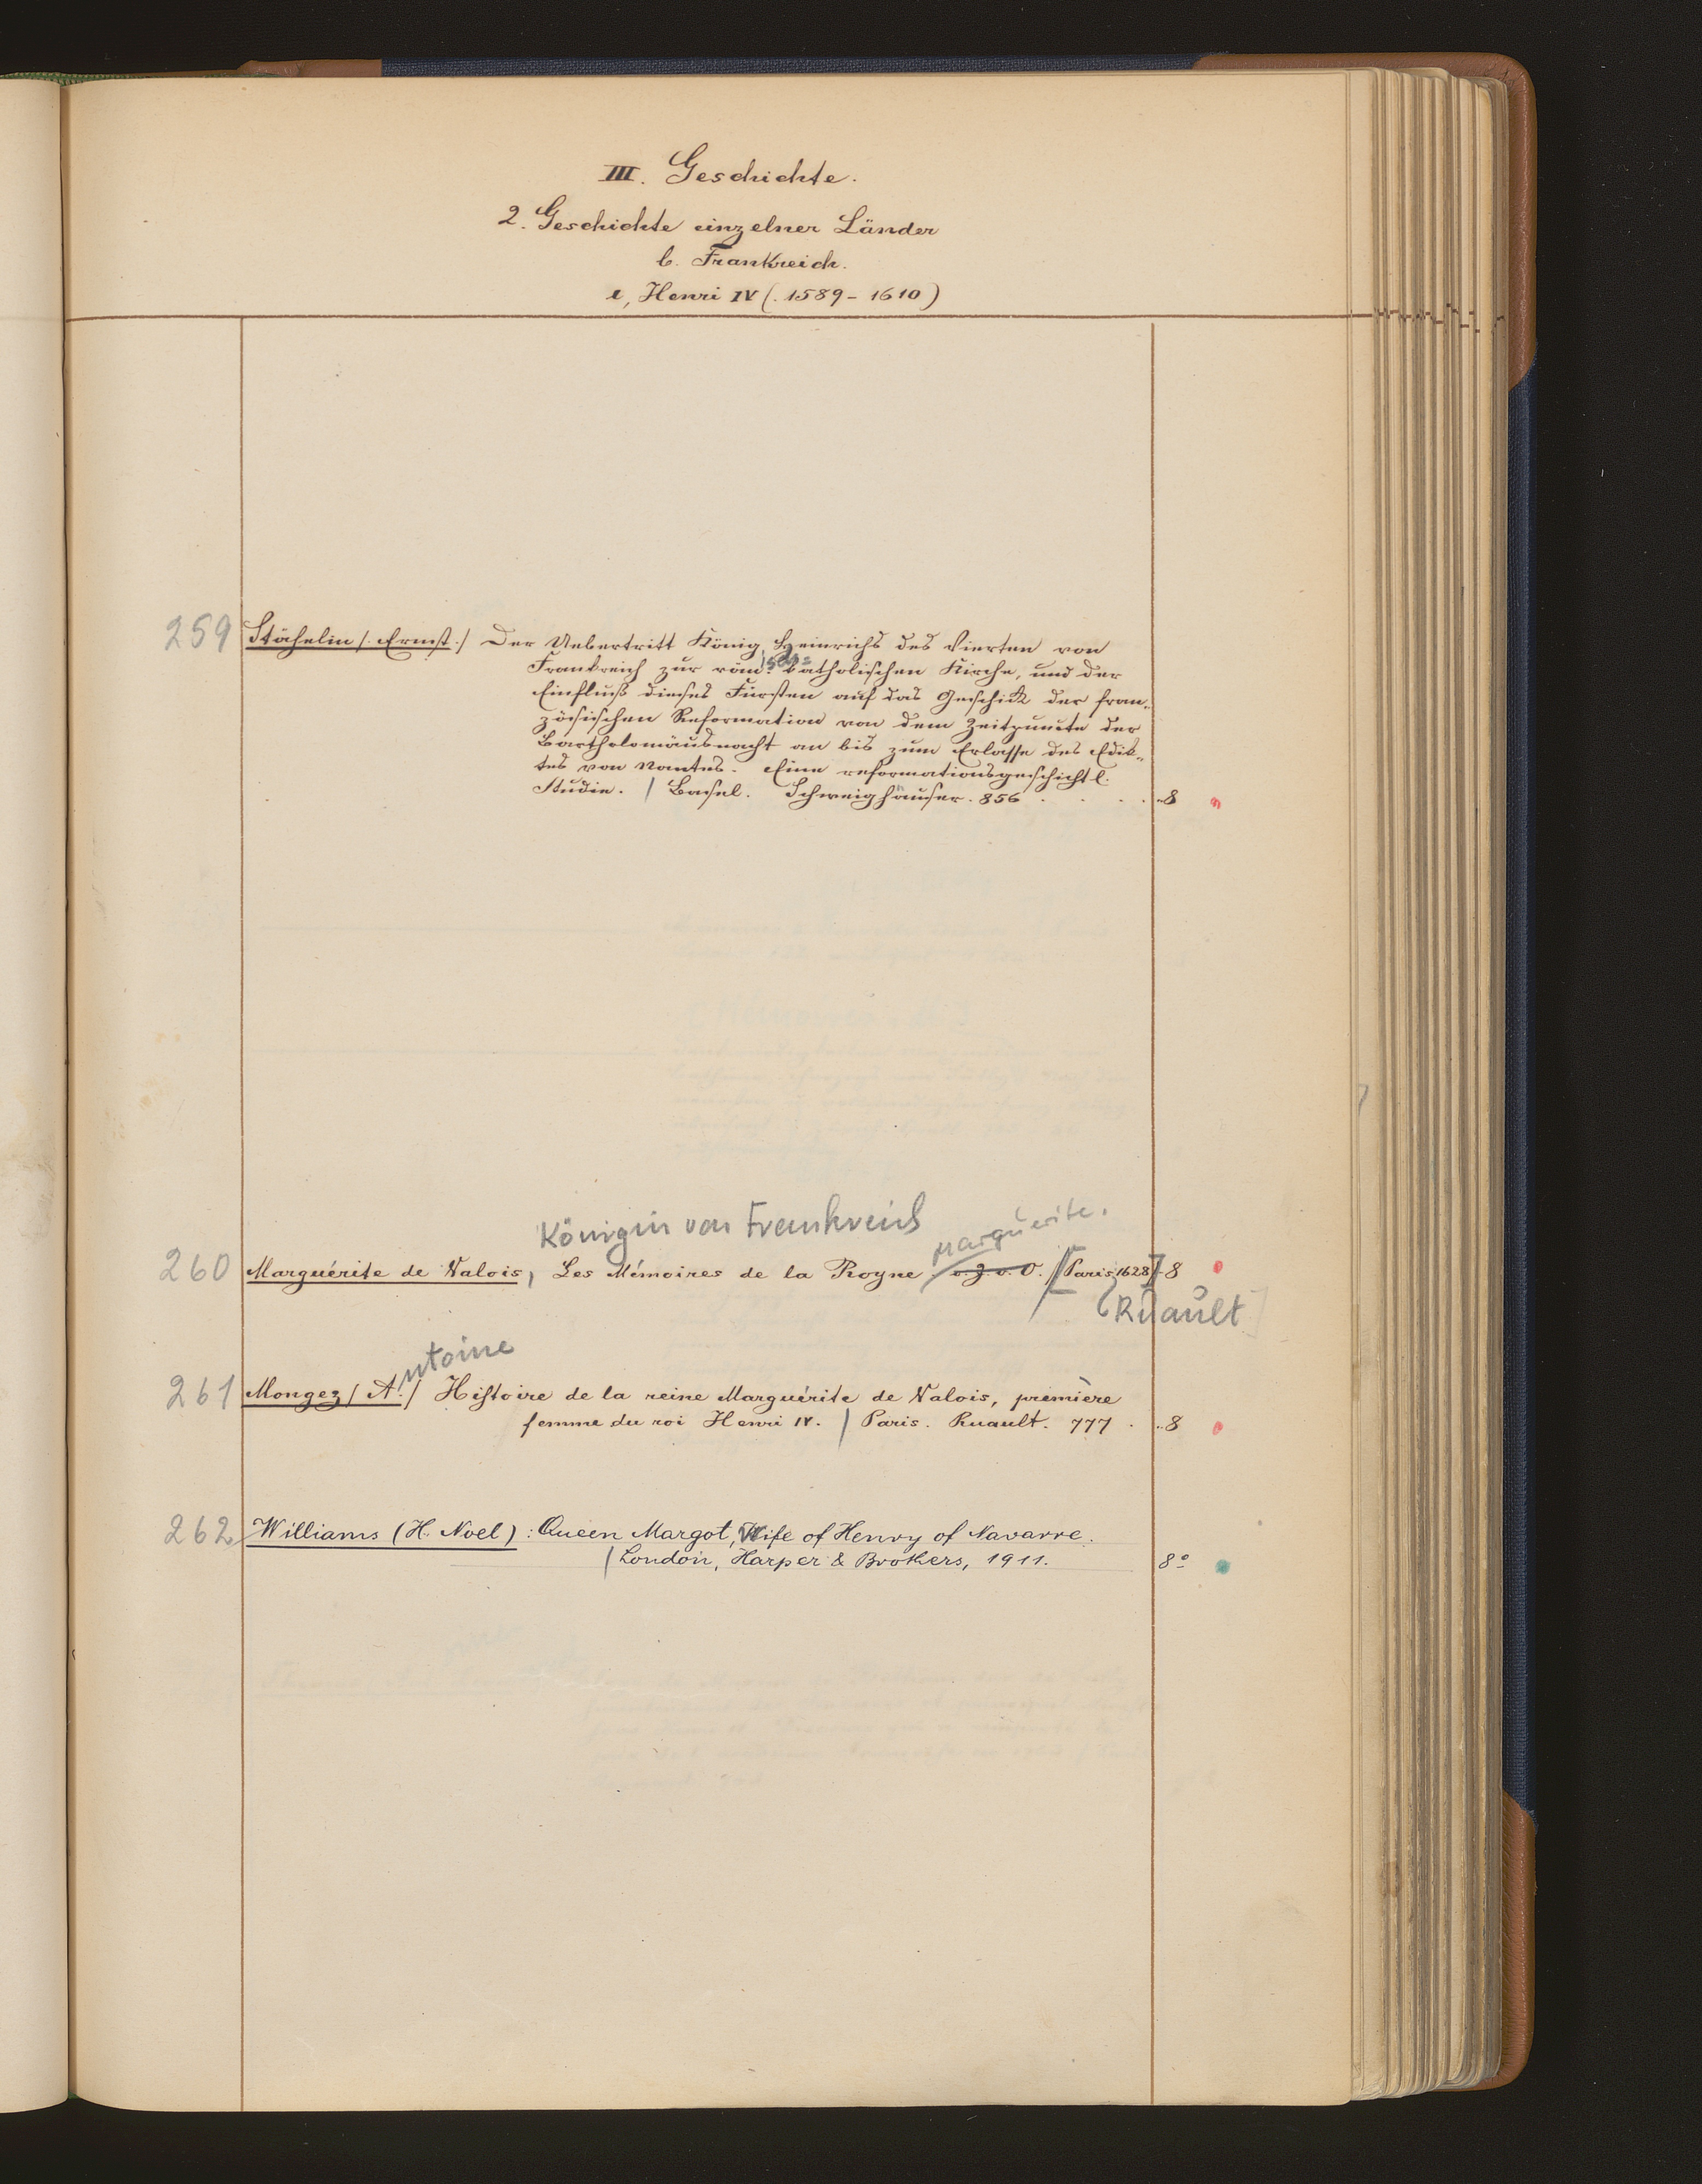 III. Geschichte.
2. Geschichte einzelner Länder
b. Frankreich.
Henri IV (. 1589 - 1610)
259 Stähelin /. Ernst ./ Der Uebertritt König Heinrichs des Vierten von
Frankreich zur röm. isch= katholischen Kirche, und der
Einfluß dieses Fürsten auf das Geschick der fran-
zösischen Reformation von dem Zeitpunkte der
Bartholomäusnacht an bis zum Erlasse des Edik-
tes von Nantes. Eine reformationsgeschichtl.
Studie. / Basel. Schweighäuser. 856 . . . . 8
Königin von Frankreich
Marguerite.
260 Marguérite de Valois, Les Mémoires de la Royne o. J. o. O. / [Paris, 1628] 8
(Ruault]
ntoine
261 Mongez / A. / Histoire de la reine Marguérite de Valois, première
femme du roi Henri IV. / Paris. Ruault. 777 . . 8
262 Williams (H. Noel) : Queen Margot, Wife of Henry of Navarre.
/ London, Harper & Brothers, 1911. 8°